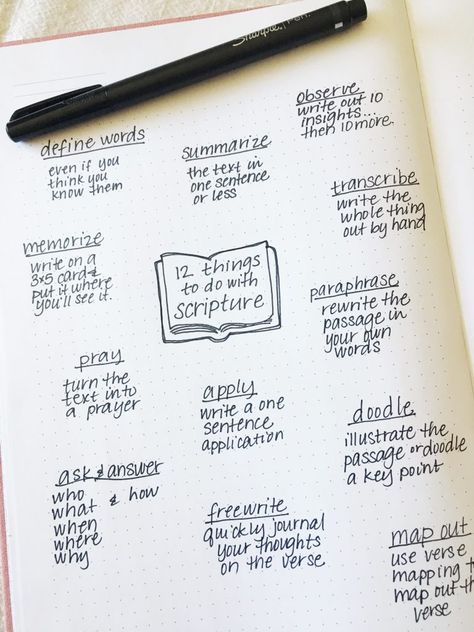 Sharpie. Pen.
define words
even if you
think you
know them
summarize
the text in
one sentence
or less
observe
write out 10
insights...
then 10 more.
transcribe
write the
whole thing
out by hand
memorize
write on a
3x5 card &
put it where
you'll see it.
12 things
to do with
scripture
paraphrase
rewrite the
passage in
your own
words
pray
turn the
text into
a prayer
apply
write a one
sentence
application
doodle
illustrate the
passage or doodle
a key point
ask & answer
who
what & how
when
where
why
freewrite
quickly journal
your thoughts
on the verse
map out
use verse
mapping to
map out
verse